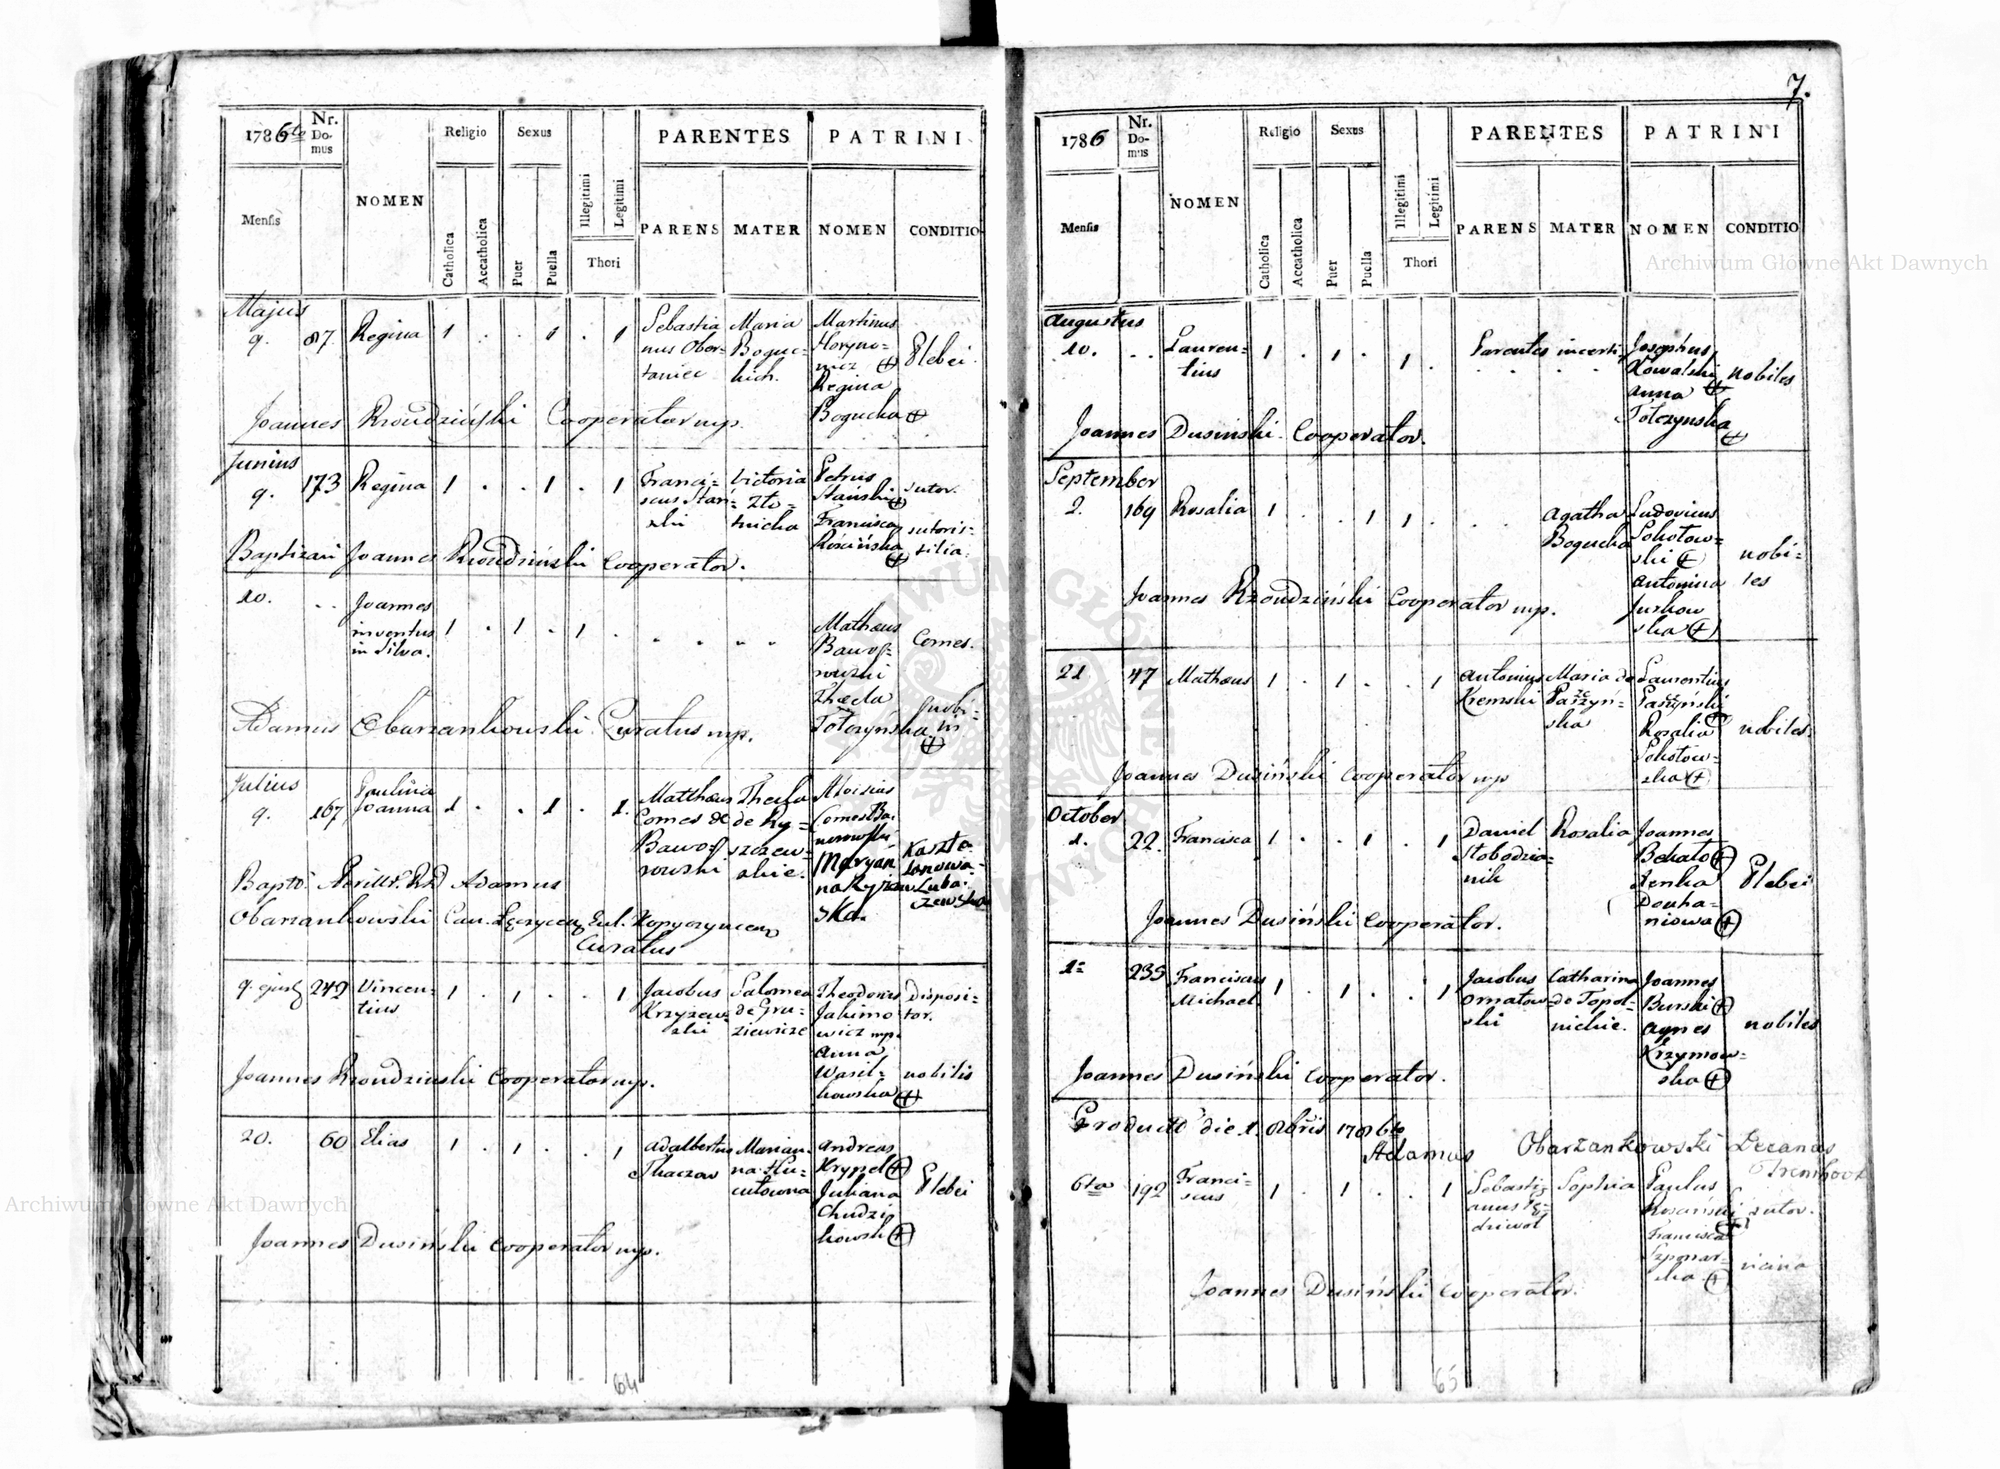 7.
1786to
Nr. Do-mus
Religio
Sexus
PARENTES
PATRINI
Mensis
NOMEN
Catholica
Accatholica
Puer
Puella
Illegitimi
Legitimi
Thori
PARENS
MATER
NOMEN
CONDITIO
Majus
9.
87
Regina
1 . . 1 . 1
Sebastia
nus Ober-
taniec
Maria
Boguc-
kich.
Martinus
Regina
Bogucka
Plebei
Joannes Rzondziński Cooperator mp.
Junius
9.
173
Regina
1 . . 1 . 1
Franci-
scus Stań-
ski
Victoria
Zło-
tnicka
Petrus
Stański
Francisca
Rościńska
sutor.
sutoris
filia.
Baptizavi Joannes Rzondziński Cooperator.
10.
Joannes
inventus
in Silva.
1 . 1 . 1 .
Matheus
Bawo-
rowski
Thecla
Tołczyńska
Comes.
Nobi-
lis
Adamus Obarzankowski Curatus mp.
Julius
9.
167
Paulina
Joanna
1 . . 1 . 1.
Matthæus
Comes de
Bawo-
rowski
Thecla
de Ry-
szczew-
skie.
Aloisius
Comes Ba-
worowski
Maryan
na Ryszcew
ska.
Kaszte
lanowa
Luba-
czewska
Adamus
Obarzankowski Can. Łęzycen Eccl. Kopyczyncen
Curatus
9 ejusd
242
Vincen-
tius
1 . 1 . . 1
Jacobus
Krzyzew-
ski
Salomea
de Gru-
ziewicze
Theodorus
Jakimo
wicz mp.
Anna
Wasil-
kowska
Disposi-
tor.
nobilis
Joannes Rzondzinski Cooperator mp.
20.
60
Elias
1 . 1 . . 1
Adalbertus
Tkaczow
Marian-
na
Andreas
Krypel
Juliana
Chudzi
kowsk
Plebei
Joannes Dusiński Cooperator mp.
64
1786
Nr. Do-mus
Religio
Sexus
PARENTES
PATRINI
Mensis
NOMEN
Catholica
Accatholica
Puer
Puella
Illegitimi
Legitimi
Thori
PARENS
MATER
NOMEN
CONDITIO
Augustus
10.
Lauren-
tius
1 . 1 . 1 .
Parentes incerti
Josephus
Kowalski
Anna
Tołczynska
nobiles
Joannes Dusinski Cooperator.
September
2.
169
Rosalia
1 . . 1 1 .
Agatha
Bogucka
Ludovicus
Sokołow-
ski
Antonina
Jurkow
ska
nobi-
les
Joannes Rzondziński Cooperator mp.
21
47
Mathæus
1 . 1 . . 1
Antonius
Kremski
Maria de
Paszyń-
ska
Laurentius
Paszyński
Rosalia
Sokołow-
ska
nobiles.
Joannes Dusiński Cooperator mp
October
1.
22.
Francisca
1 . . 1 . 1
Daniel
Słobodzia-
nik
Rosalia
Joannes
Bekało
Jenka
Douha-
niowa
Plebei
Joannes Dusiński Cooperator.
1=
235
Franciscus
Michael
1 . 1 . . 1
Jacobus
Ornatow-
ski
Catharina
de Topol-
nickie.
Joannes
Burski
Agnes
Krzymow-
ska
nobiles
Joannes Dusiński Cooperator.
Product die 1. 8bris 1786to
Adamus Obarzankowski Decanus
Trembowl
6ta
192
Franci-
scus
1 . 1 . . 1
Sebasti-
anus
Sophia
Paulus
Rosański
Francisca
Szponar-
ska
sutor.
vicina
Joannes Dusiński Cooperator.
65
Archiwum Główne Akt Dawnych
Archiwum Główne Akt Dawnych
ARCHIWUM GŁÓWNE AKT DAWNYCH